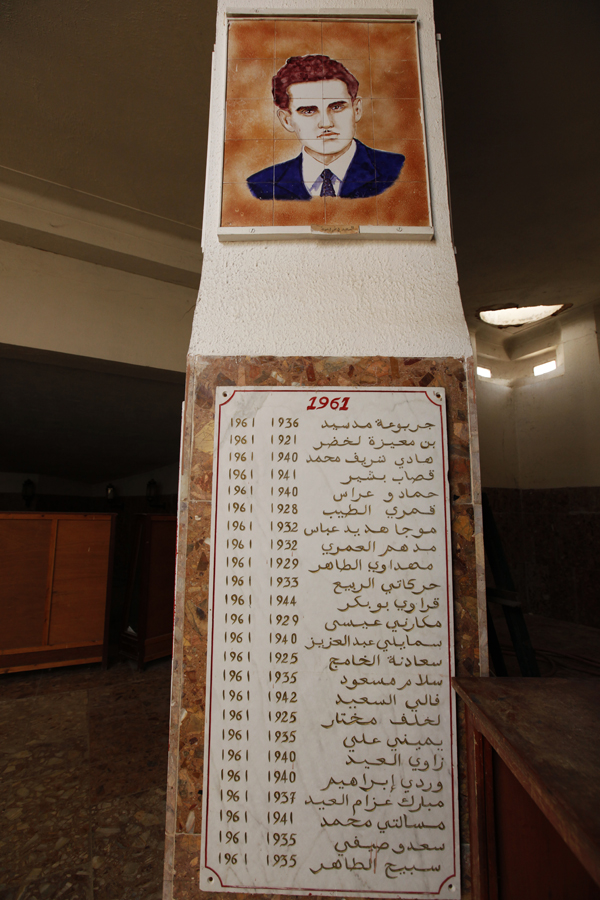 1961
جربوعة مدسيد 1936 1961
بن معيزة لخضر 1921 1961
هادي شريف محمد 1940 1961
قصاب بشير 1941 1961
حمادو عراس 1940 1961
قمري الطيب 1928 1961
موجا هديد عباس 1932 1961
مدهم العمري 1932 1961
مهداوي الطاهر 1929 1961
حركاتي الربيع 1933 1961
قراوي بوبكر 1944 1961
مكارني عيسى 1929 1961
سمايلي عبد العزيز 1940 1961
سعادنة الخامج 1925 1961
سلام مسعود 1935 1961
فالي السعيد 1942 1961
لخلف مختار 1925 1961
يميني علي 1935 1961
زاوي العيد 1940 1961
وردي إبراهيم 1940 1961
مبارك عزام العيد 1937 1961
مسالتي محمد 1941 1961
سعدو صيفي 1935 1961
سبيح الطاهر 1935 1961